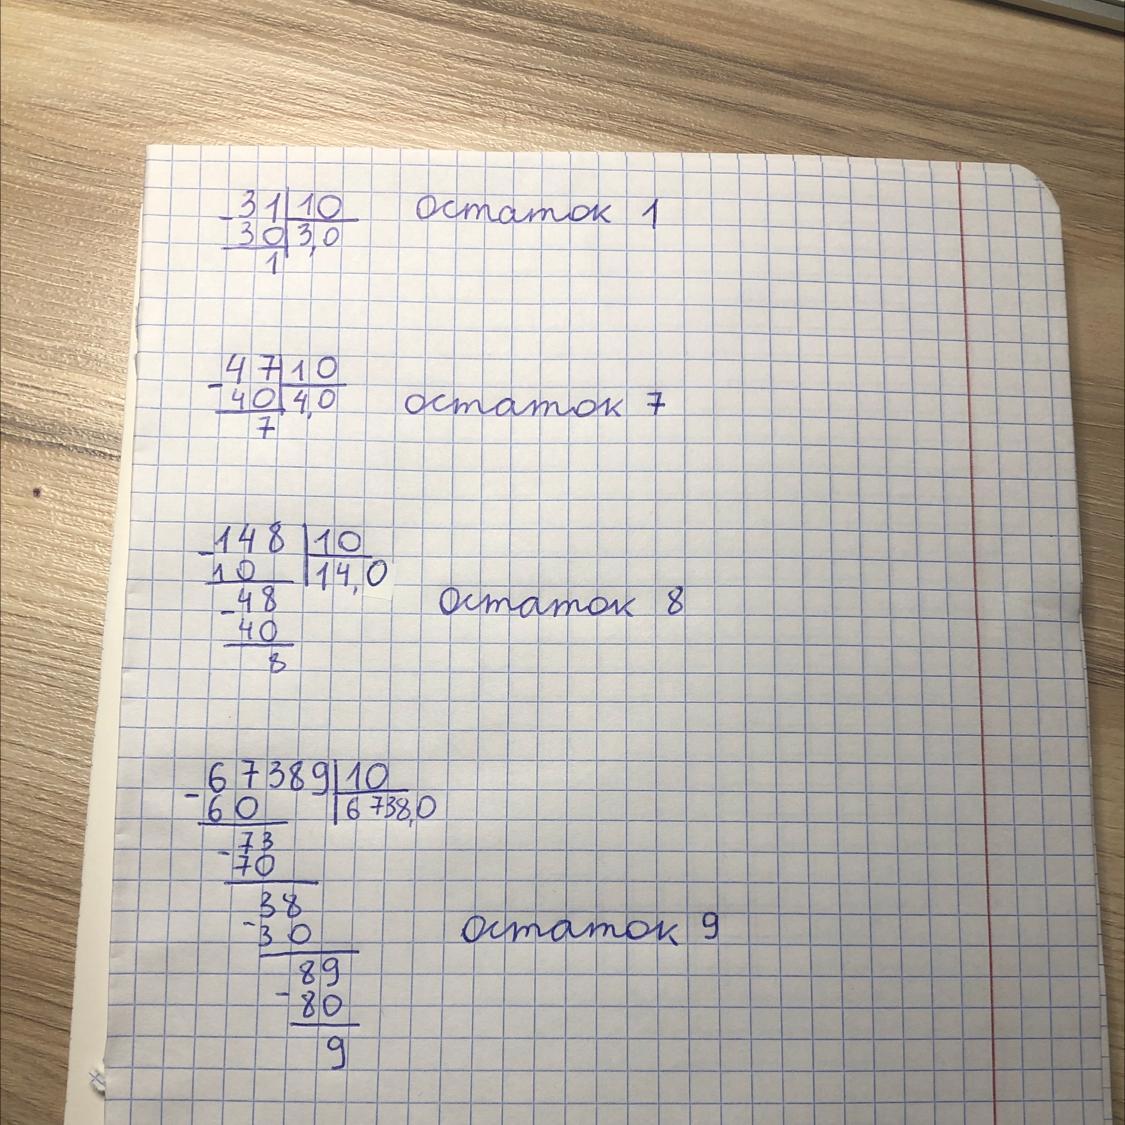 31 10 остаток 1
30 3,0
1
47 10
40 4,0 остаток 7
7
148 10
10 14,0
48 остаток 8
40
8
67389 10
60 6738,0
73
70
38
30 остаток 9
89
80
9